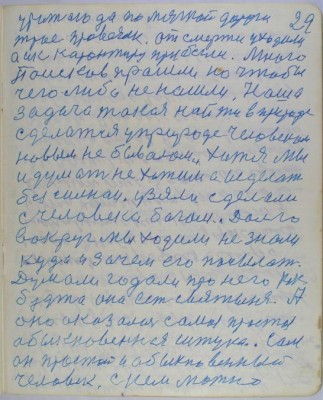 29
чужтого да по мягкой дороги
трое проводок. от смерти уходили
а к карантину прибегли. Много
Поисков прашли но чтобы
чего либо не нашли. Наша
задача такая найти в природе
сделатся у природе человеком
новым не бывалом. Хотя мы
и думат не хотим а и делат
без силнаи. узяли сделали
с человека богом. Долго
вокруг мы ходили не знали
куда и зачем его посылат.
Думали гадали про него как
будта она ест святыня. А
оно оказалас самая простая
обыкновенная штука. Сам
он простой и обыкновенный
человек. с кем можно